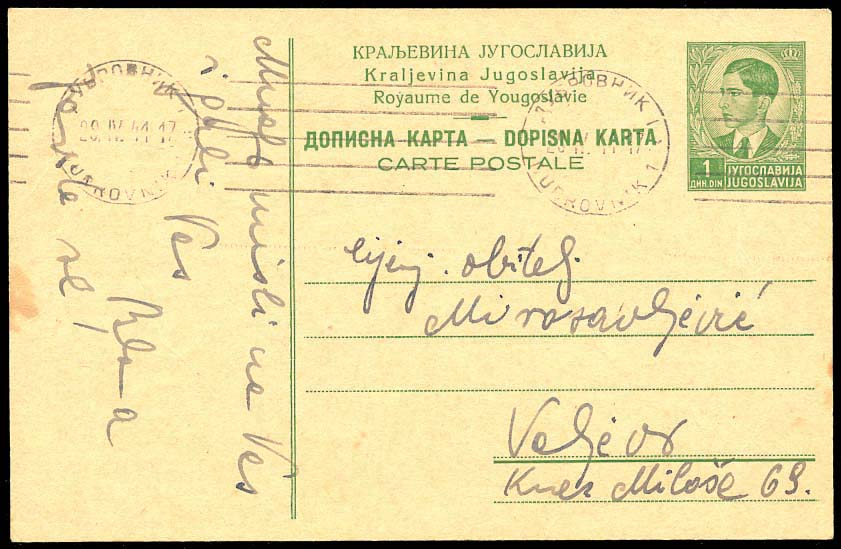 КРАЉЕВИНА ЈУГОСЛАВИЈА
Kraljevina Jugoslavija
Royaume de Yougoslavie
ДОПИСНА КАРТА — DOPISNA KARTA
CARTE POSTALE
1
ДИН. DIN
ЈУГОСЛАВИЈА
JUGOSLAVIJA
ДУБРОВНИК
20.IV.41.17
DUBROVNIK
ДУБРОВНИК 1
DUBROVNIK 1
Mnogo misli na Vas
i ljubi Vas
Cijenj. obitelj
Mirosavljević
Valjevo
Knez Miloše 69.